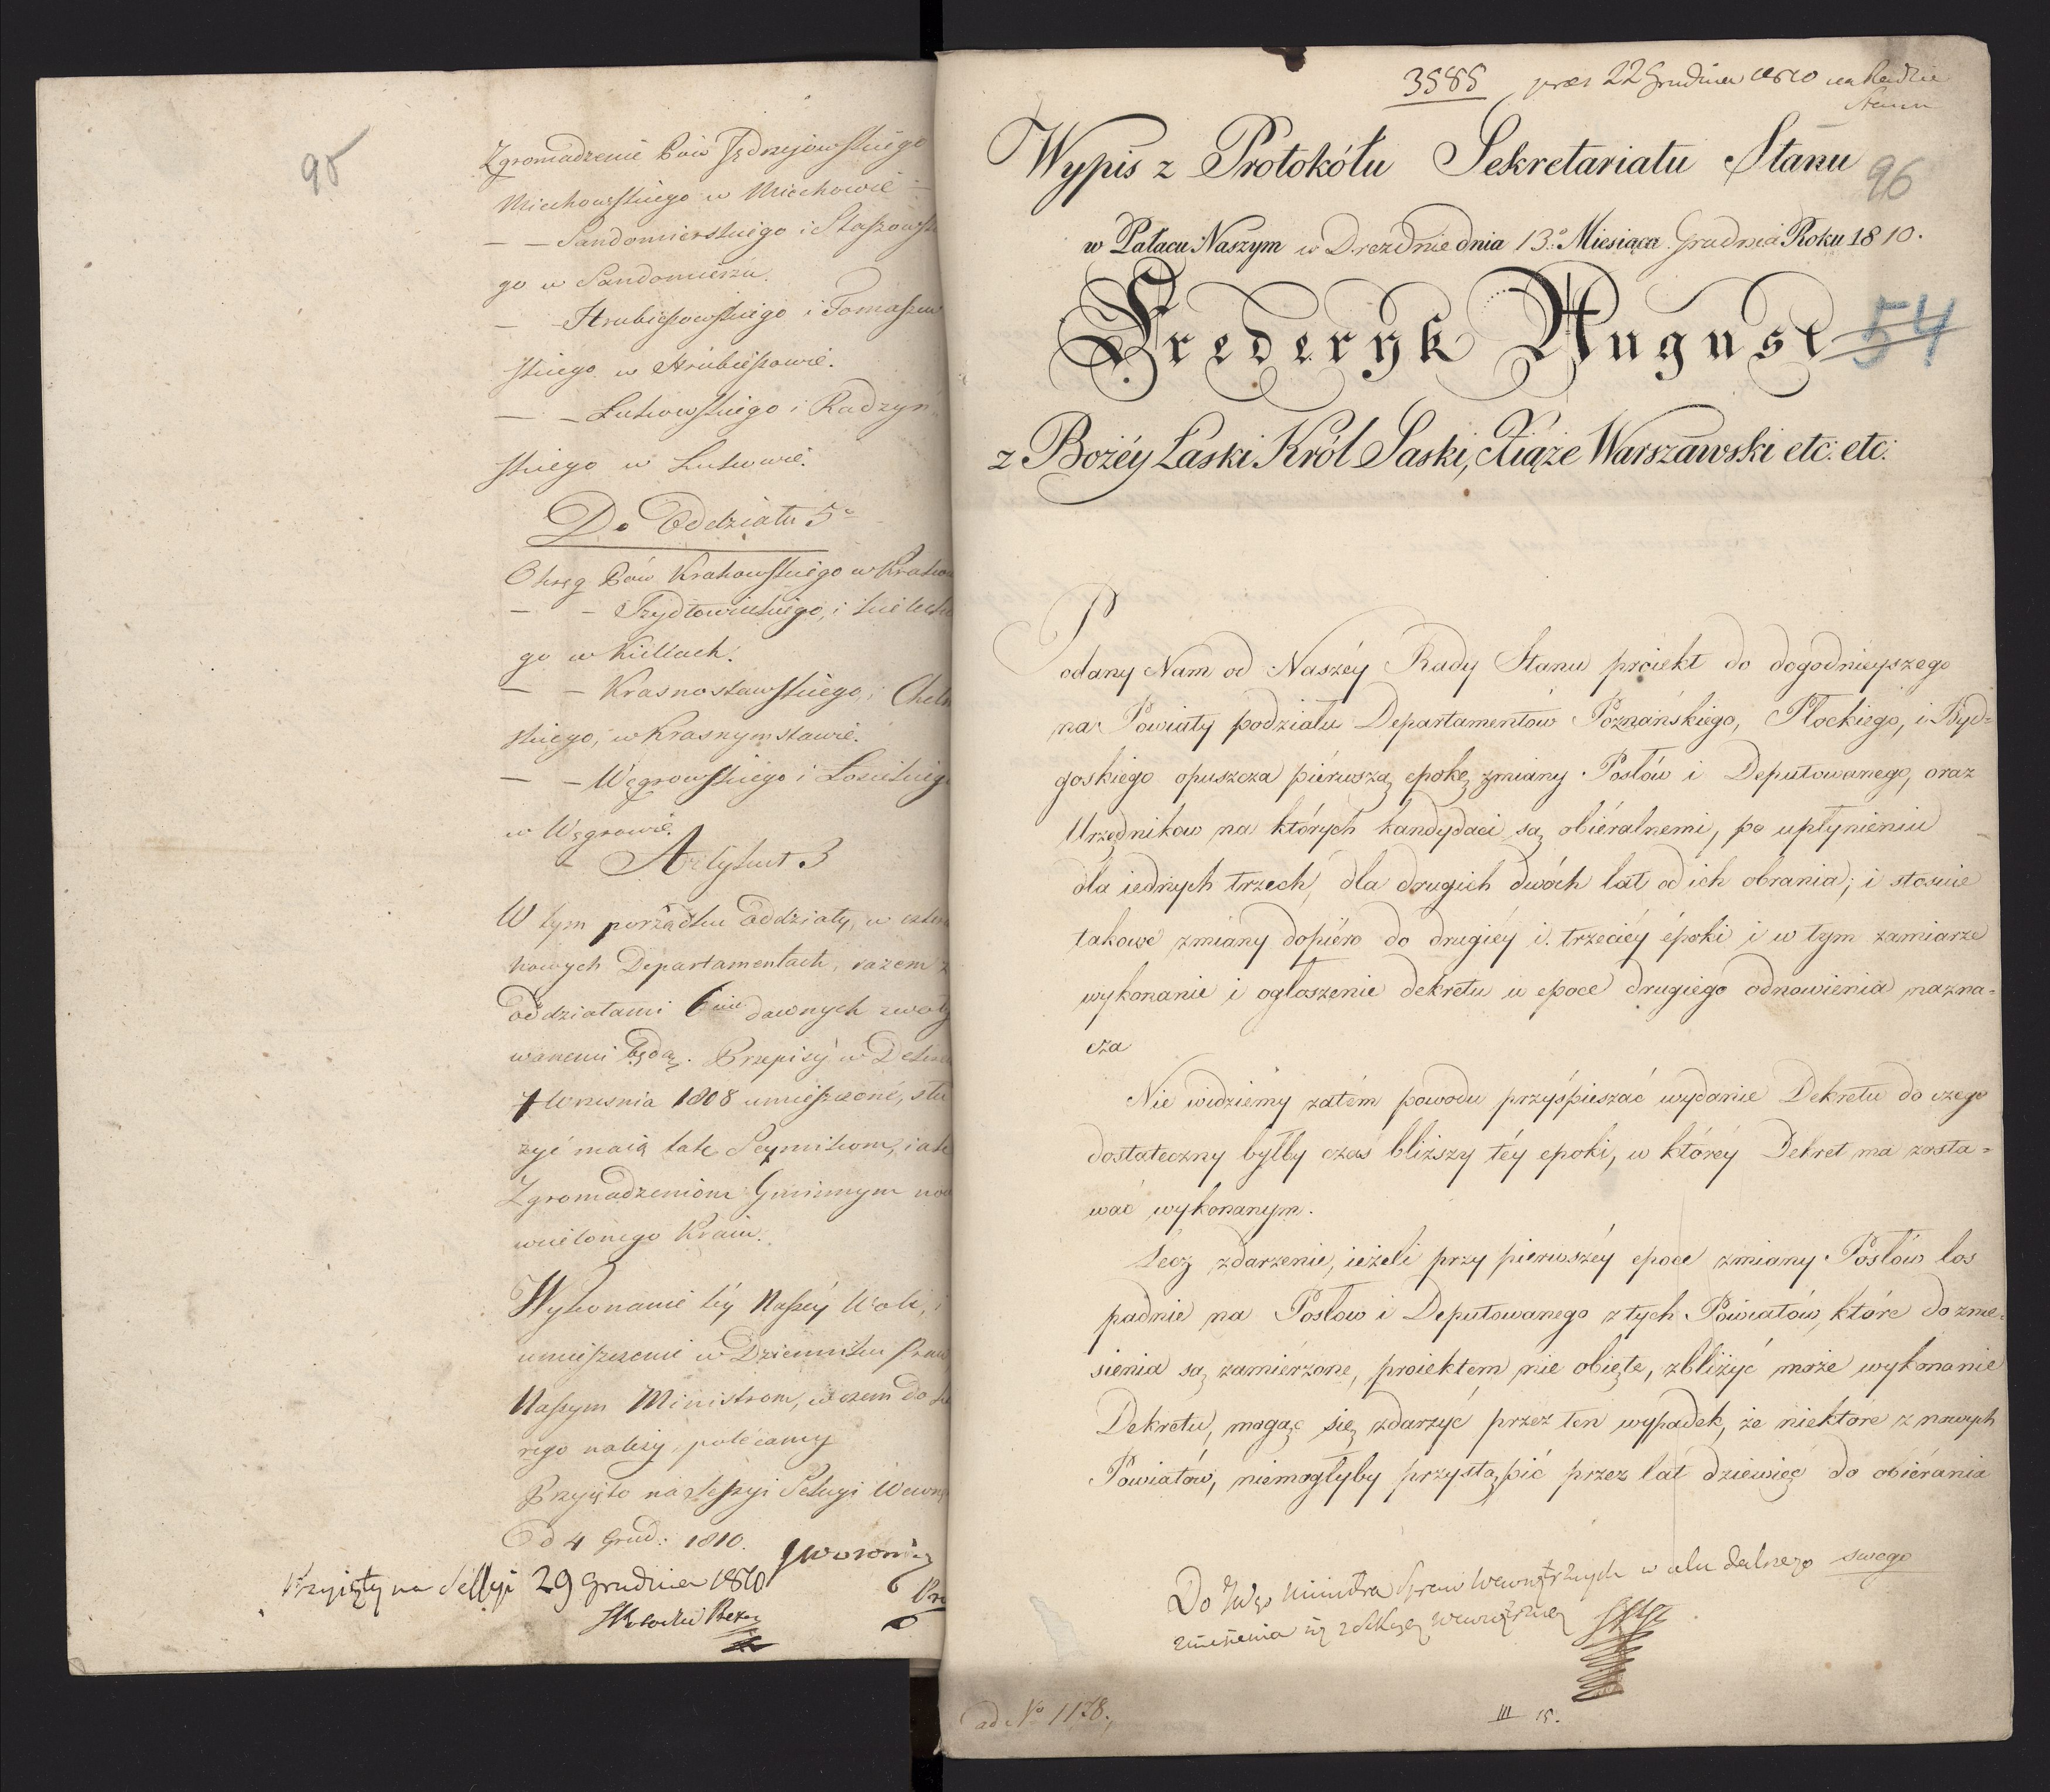 95
Zgromadzenie Pów Jędrzejowskiego
Miechowskiego w Miechowie
— — Sandomierskiego i Staszowsk
go w Sandomierzu.
— — Hrubieszowskiego i Tomaszew
skiego w Hrubieszowie.
— — Łukowskiego i Radzyń
skiego w Łukowie.
Do Oddziału 5º
Okręg Pów Krakowskiego w Krako
— — Szydłowieckiego, i Kielecki
go w Kielcach.
— — Krasnostawskiego, i Chełm
skiego, w Krasnymstawie.
— — Węgrowskiego i Łosickieg
w Węgrowie.
Artykuł 3
W tym porządku Oddziały, w czter
nowych Departamentach, razem z
oddziałami 6ciu dawnych zwoły
wanemi będą. Przepisy w Dekre
7 Września 1808 umieszczone, słu
żyć maią tak Seymikom, iak
Zgromadzeniom Gminnym now
wcielonego Kraiu.
Wykonanie téy Naszéy Woli, i
umieszczenie w Dzienniku Praw
Naszym Ministrom, w czem do któ
rego należy, polecamy
Przyięto na Sessyi Sekcyi Wewn
D 4 Grud: 1810.
Przyięty na Sessyi 29 Grudnia 1810
3585 præs 22 Grudnia 1810 na Radzie
Stanu
Wypis z Protokółu Sekretariatu Stanu
96
w Pałacu Naszym w Dreznie dnia 13º Miesiąca Grudnia Roku 1810.
Fryderyk August
54
z Bożéy Łaski Król Saski, Xiąże Warszawski etc: etc:
Podany Nam od Naszéy Rady Stanu proiekt do dogodnieyszego
na Powiaty podziału Departamentów Poznańskiego, Płockiego, i Byd=
goskiego opuszcza piérwszą epokę zmiany Posłów i Deputowanego, oraz
Urzędnikow na których kandydaci są obiéralnemi, po upłynieniu
dla iednych trzech, dla drugich dwóch lat od ich obrania; i stosuie
takowé zmiany dopiéro do drugiéy i trzeciéy époki i w tym zamiarze
wykonanie i ogłoszenie dekretu w epoce drugiego odnowienia nazna=
cza
Nie widziemy zatém powodu przyśpieszać wydanie Dekretu do czego
dostateczny byłby czas bliższy téy epoki, w któréy Dekret ma zosta=
wać wykonanym.
Lecz zdarzenie, ieżeli przy pierwszéy epoce zmiany Posłów los
padnie na Posłow i Deputowanego z tych Powiatów, które do znie=
sienia są zamierzone, proiektem nie obięte, zbliżyć może wykonanie
Dekretu, mogąc się zdarzyć przez ten wypadek, że niektóre z nowych
Powiatów, niemogłyby przystąpić przez lat dziewięć do obiérania
Do JWgo Ministra Spraw Wewnętrznych w celu dalszego swego
zniesienia się z Sekcyą Wewnętrzną
ad Nº 1178.
III 15.